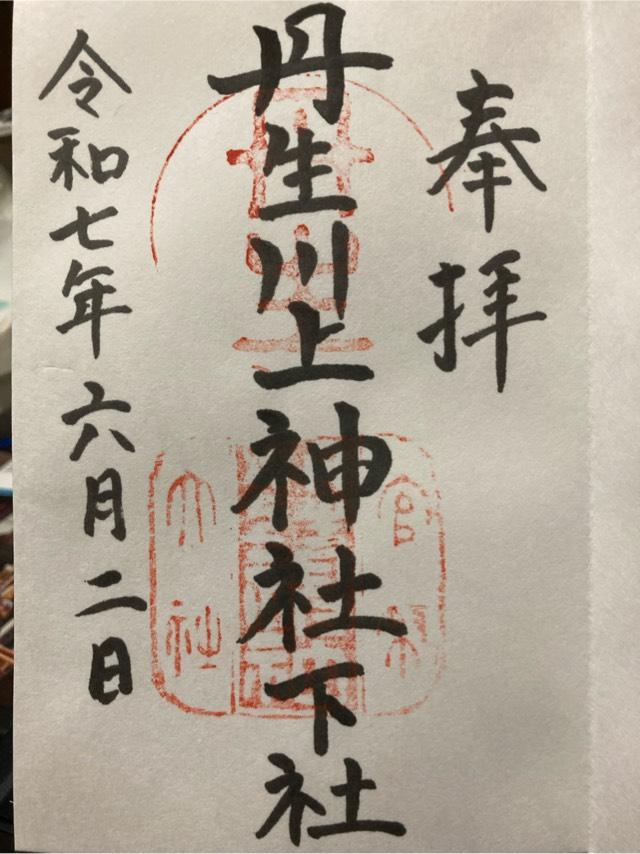 奉拝
丹生川上神社下社
令和七年六月二日